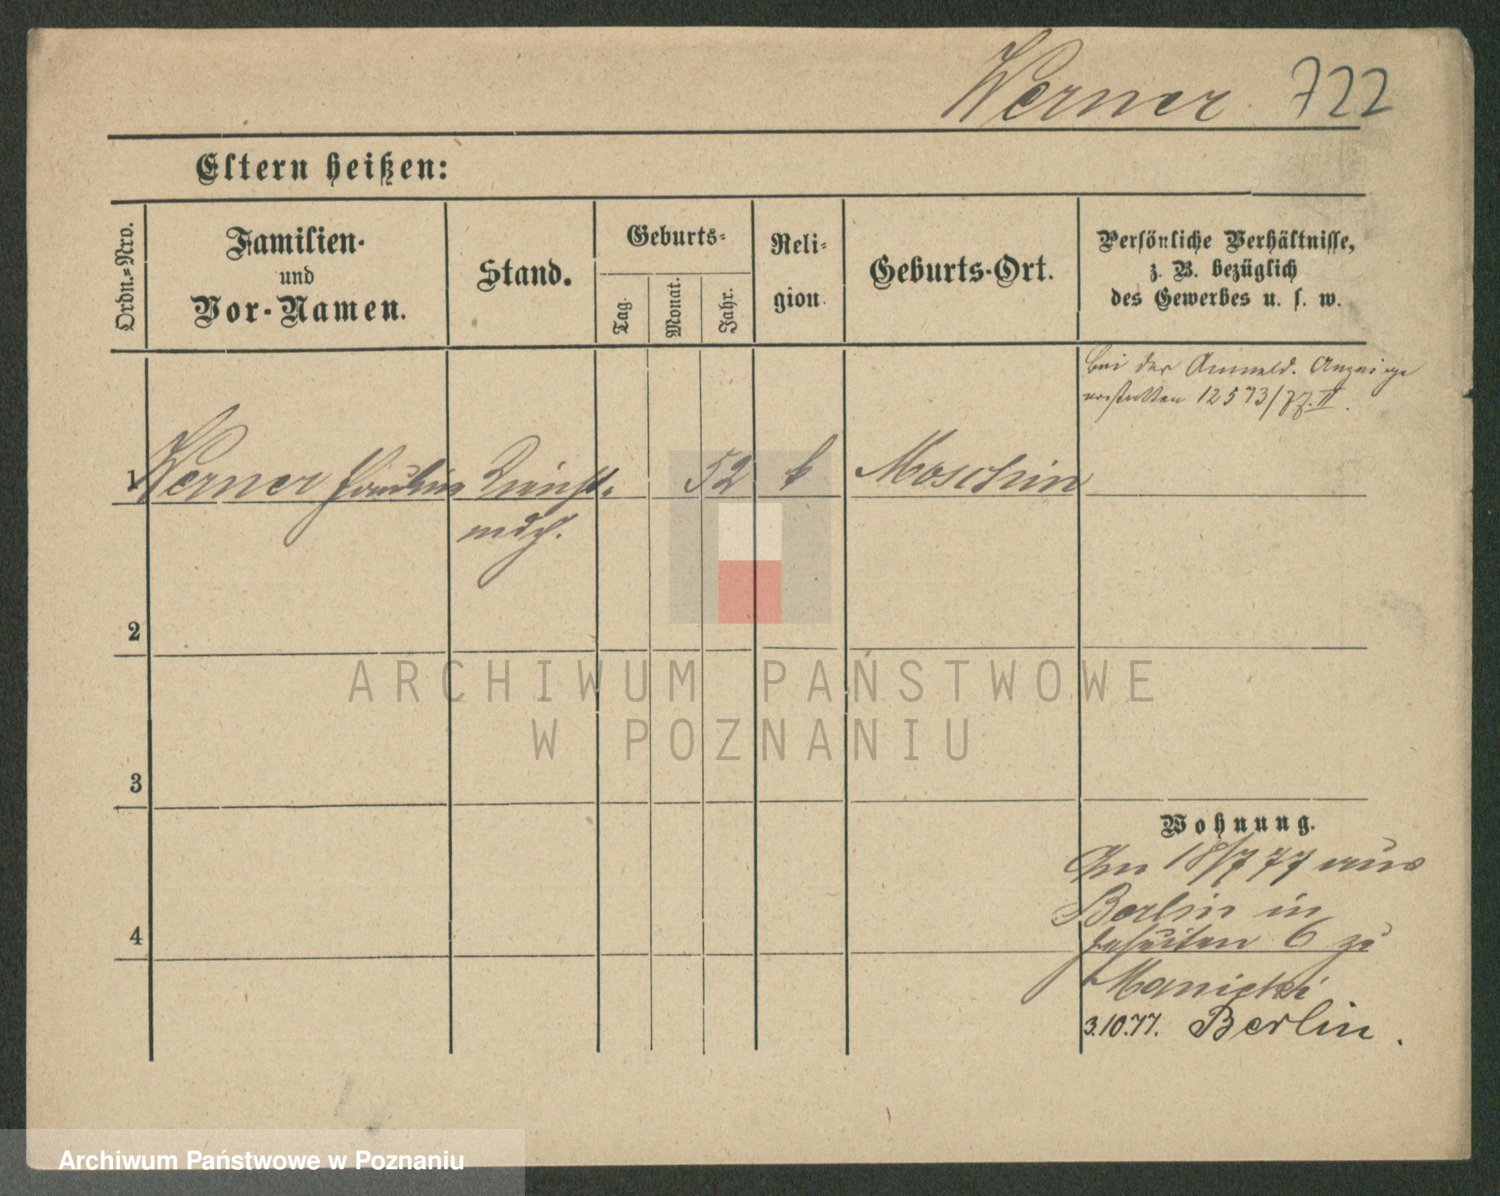 Werner 722
Eltern heißen:
Ordn.=Nro.
Familien-
und
Vor-Namen.
Stand.
Geburts-
Tag.
Monat.
Jahr.
Reli-
gion
Geburts-Ort.
Persönliche Verhältnisse,
z. B. bezüglich
des Gewerbes u. s. w.
bei der Anmeld. Anzeige
12573/77. II.
1 Werner Paulin Dienst- 52 k Moschin
mdch.
2
3
4
Wohnung.
Am 18/7 77 aus
Berlin in
Jesuiten 6 zu
Manicki
3.10.77. Berlin.
ARCHIWUM PAŃSTWOWE
W POZNANIU
Archiwum Państwowe w Poznaniu